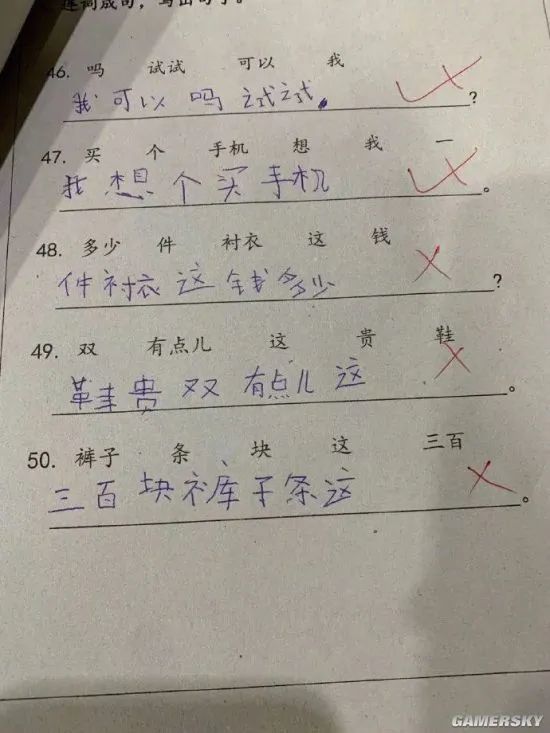 连词成句，写出句子。
46. 吗 试试 可以 我
我 可以 吗 试试。?
47. 买 个 手机 想 我 一
我 想 个 买 手机。
48. 多少 件 衬衣 这 钱
件 衬衣 这 钱 多少?
49. 双 有点儿 这 贵 鞋
鞋 贵 双 有点儿 这。
50. 裤子 条 块 这 三百
三百 块 裤子 条 这。
GAMERSKY